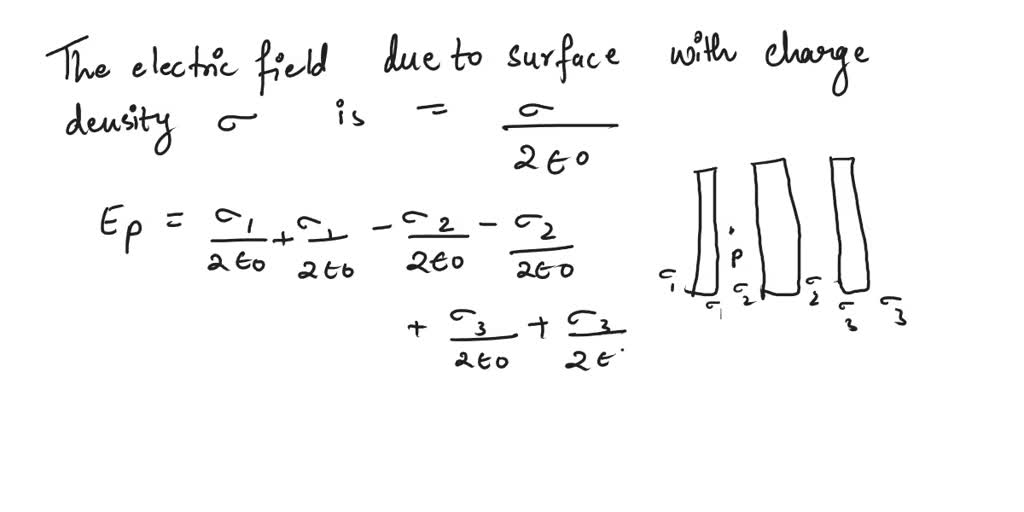 The electric field due to surface with charge
density σ is = σ/2ϵ0
Ep = σ1/2ϵ0 + σ1/2ϵ0 - σ2/2ϵ0 - σ2/2ϵ0
+ σ3/2ϵ0 + σ3/2ϵ
p
σ1 σ1 σ2 σ2 σ3 σ3